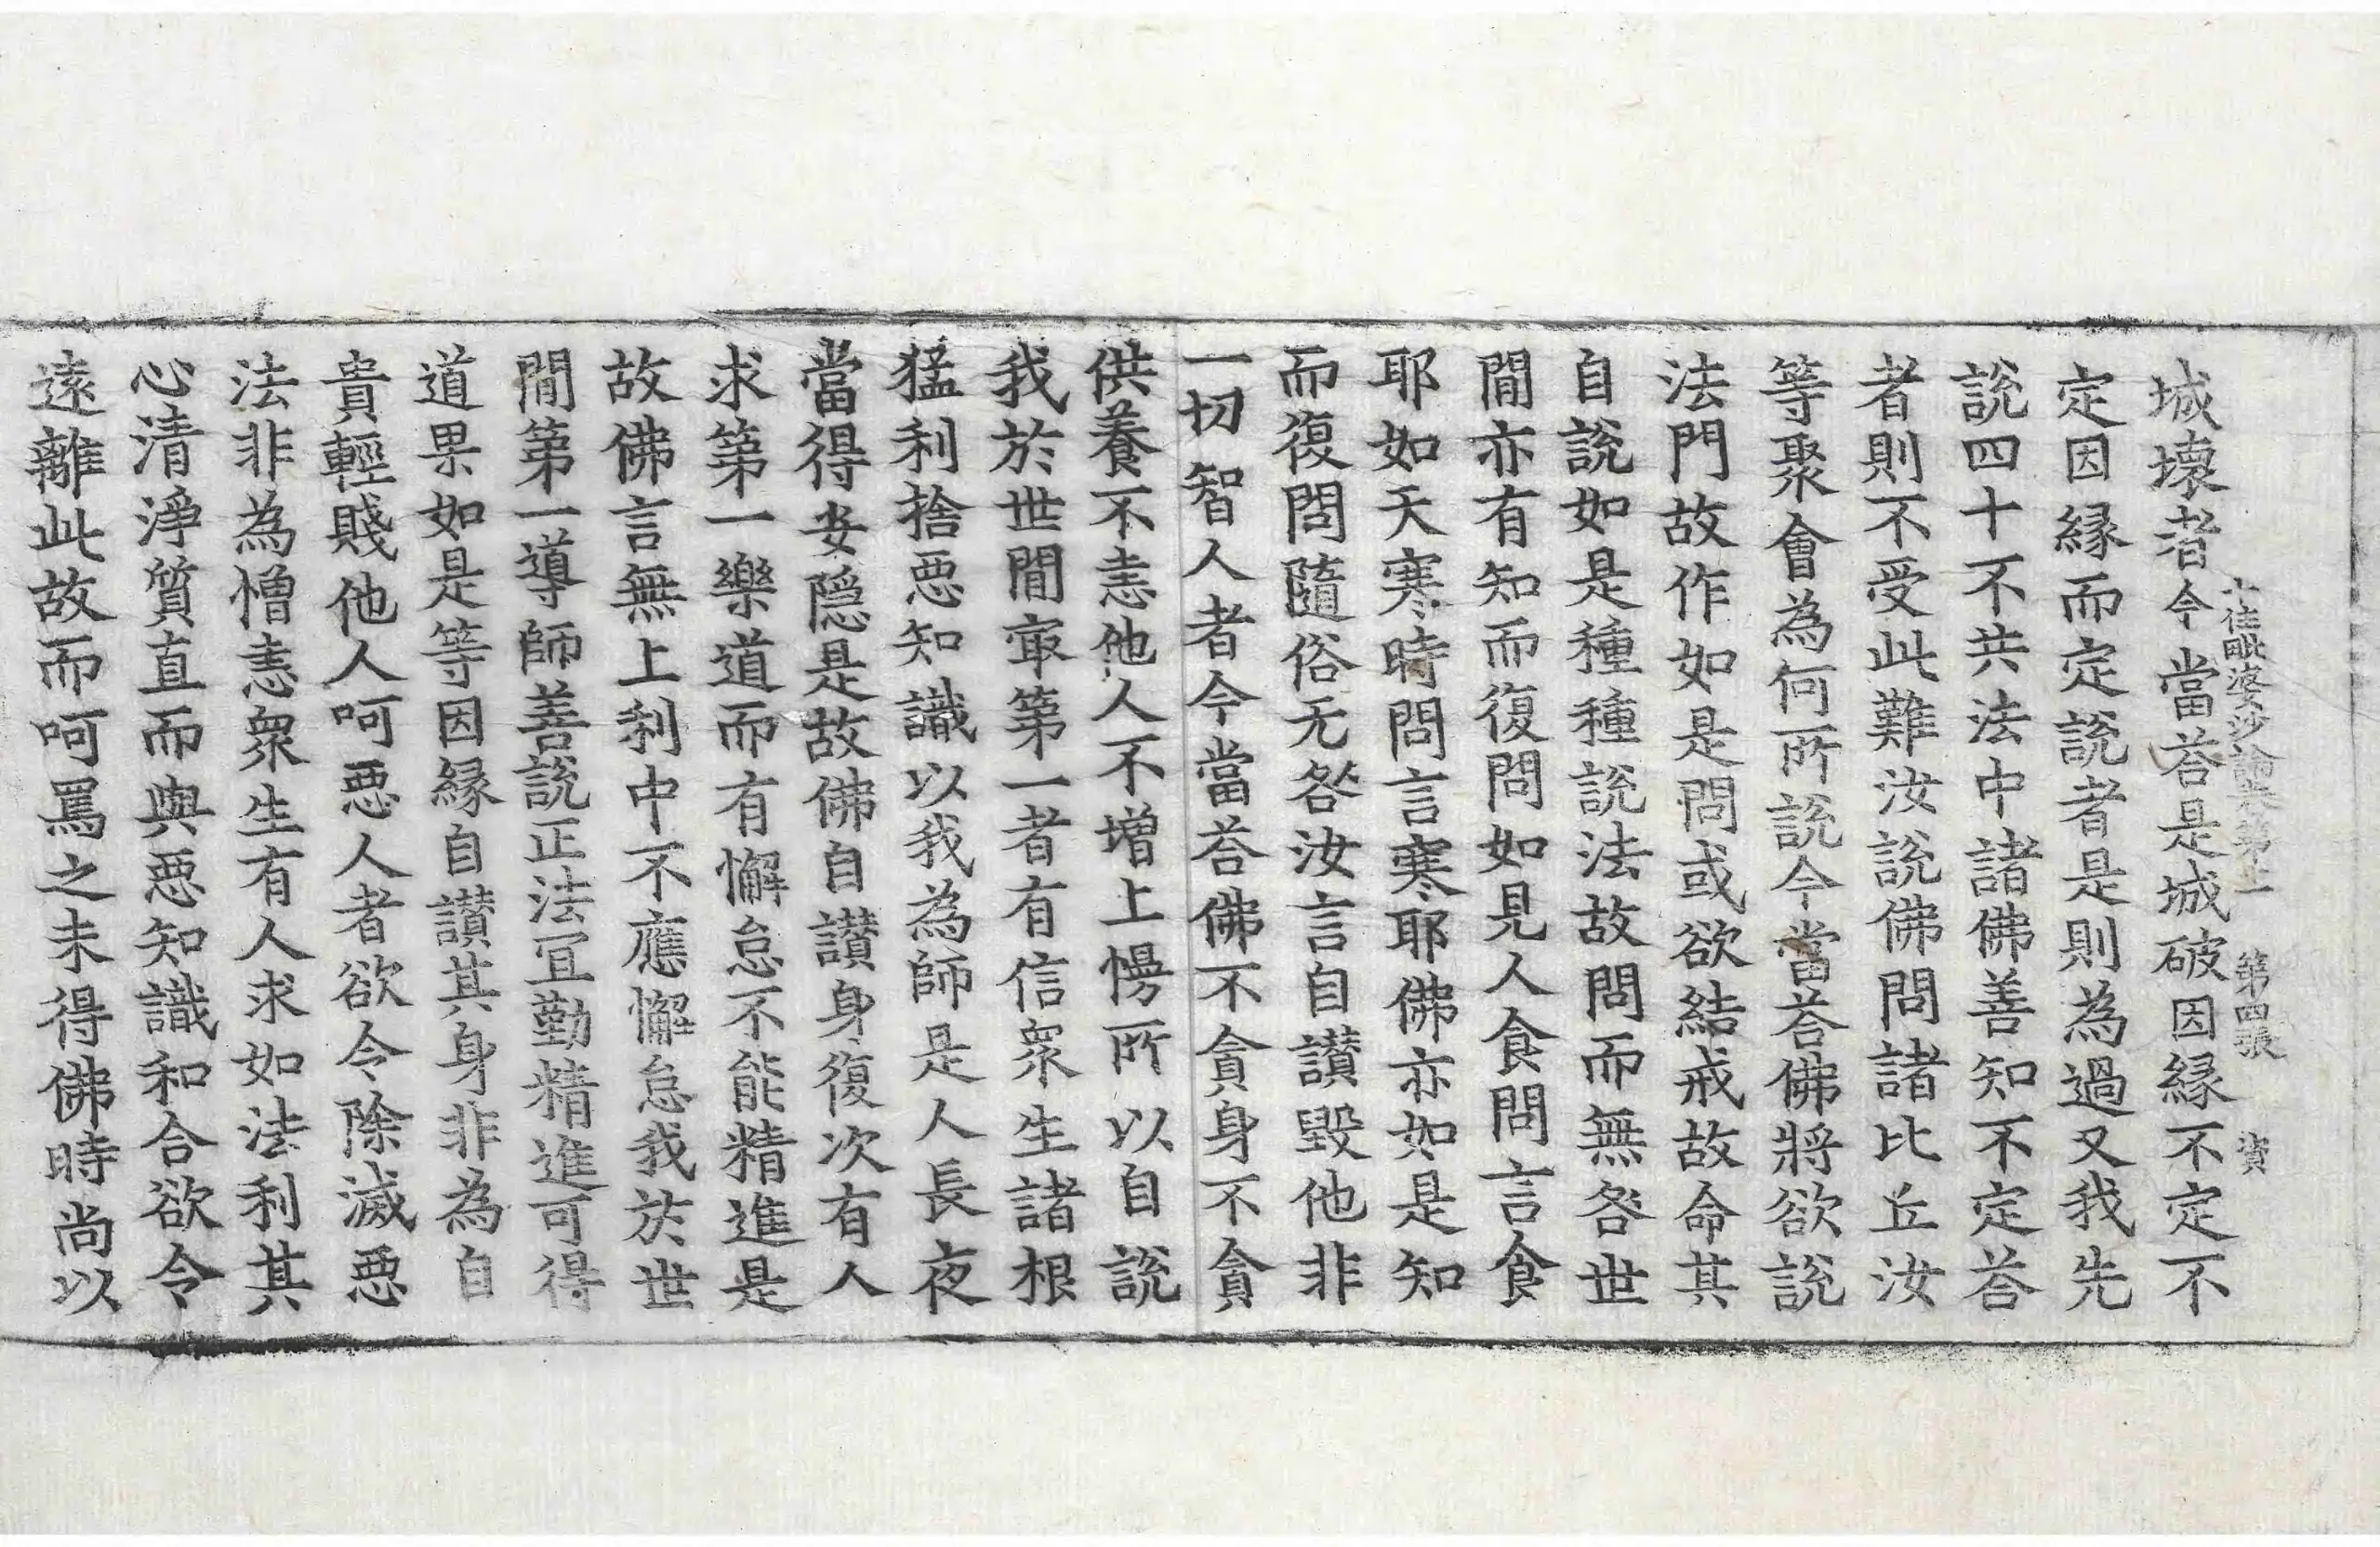 城壞者今當荅是城破因緣不定不
十住毗婆沙論 第十一 第四張 資
定因緣而定說者是則為過又我先
說四十不共法中諸佛善知不定荅
者則不受此難汝說佛問諸比丘汝
等聚會為何所說今當荅佛將欲說
法門故作如是問或欲結戒故命其
自說如是種種說法故問而無咎世
閒亦有知而復問如見人食問言食
耶如天寒時問言寒耶佛亦如是知
而復問隨俗无咎汝言自讃毀他非
一切智人者今當荅佛不貪身不貪
供養不恚他人不增上慢所以自說
我於世閒㝡第一者有信衆生諸根
猛利捨惡知識以我為師是人長夜
當得安隱是故佛自讃身復次有人
求第一樂道而有懈怠不能精進是
故佛言無上利中不應懈怠我於世
閒第一導師善說正法宜勤精進可得
道果如是等因緣自讃其身非為自
貴輕賤他人呵惡人者欲令除滅惡
法非為憎恚衆生有人求如法利其
心清淨質直而與惡知識和合欲令
遠離此故而呵罵之未得佛時尚以